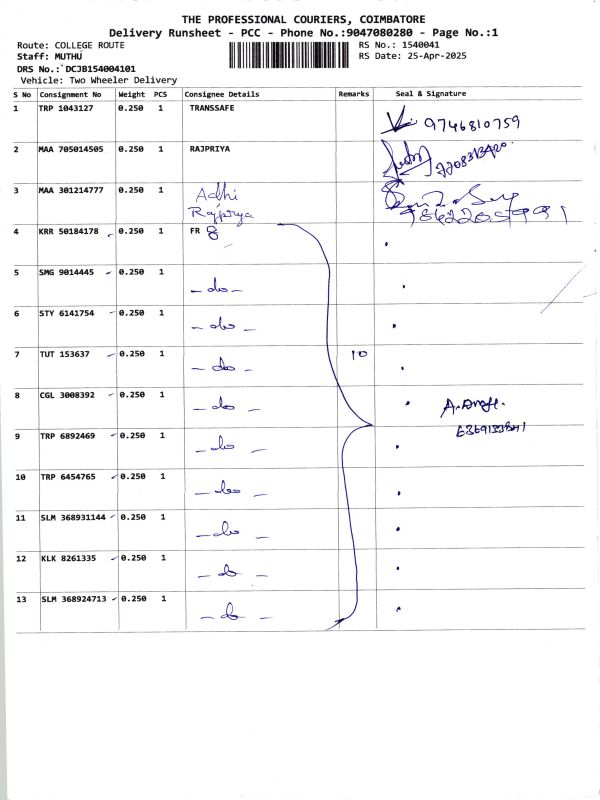 THE PROFESSIONAL COURIERS, COIMBATORE
Delivery Runsheet - PCC - Phone No.:9047080280 - Page No.:1
Route: COLLEGE ROUTE RS No.: 1540041
Staff: MUTHU RS Date: 25-Apr-2025
DRS No.:`DCJB154004101
Vehicle: Two Wheeler Delivery
S No Consignment No Weight PCS Consignee Details Remarks Seal & Signature
1 TRP 1043127 0.250 1 TRANSSAFE 9746810759
2 MAA 705014505 0.250 1 RAJPRIYA
3 MAA 301214777 0.250 1 Adhi
Rajpriya
4 KRR 50184178 0.250 1 FR 8
5 SMG 9014445 0.250 1 - do -
6 STY 6141754 0.250 1 - do -
7 TUT 153637 0.250 1 - do - 10
8 CGL 3008392 0.250 1 - do -
9 TRP 6892469 0.250 1 - do -
10 TRP 6454765 0.250 1 - do -
11 SLM 368931144 0.250 1 - do -
12 KLK 8261335 0.250 1 - do -
13 SLM 368924713 0.250 1 - do -